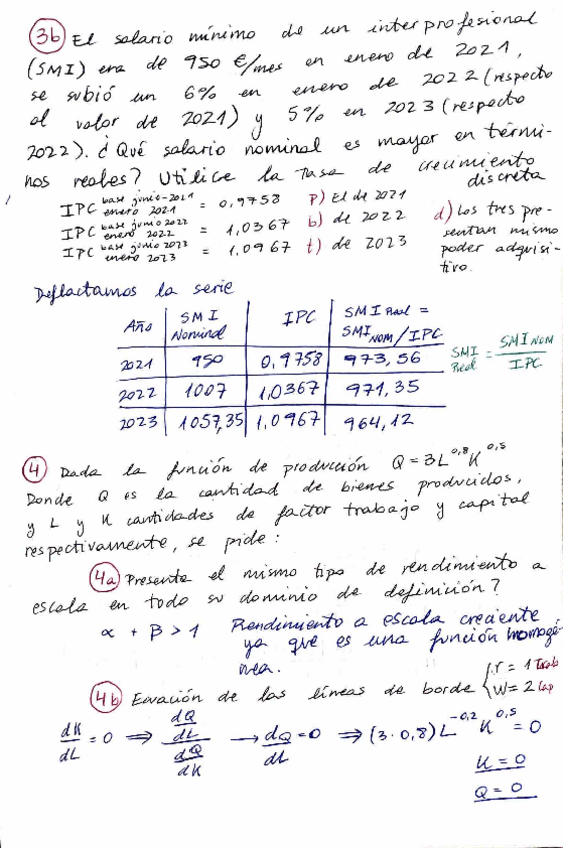 3b El salario mínimo de un interprofesional
(SMI) era de 950 €/mes en enero de 2021,
se subió un 6% en enero de 2022 (respecto
al valor de 2021) y 5% en 2023 (respecto
2022). ¿Qué salario nominal es mayor en térmi-
nos reales? Utilice la tasa de crecimiento
discreta
IPC base junio-2021 enero 2021 = 0,9758 p) El de 2021
IPC base junio 2022 enero 2022 = 1,0367 b) de 2022
IPC base junio 2023 enero 2023 = 1,0967 t) de 2023
d) Los tres pre-
sentan mismo
poder adquisi-
tivo.
Deflactamos la serie
Año SMI Nominal IPC SMI Real = SMI NOM / IPC
2021 950 0,9758 973,56
2022 1007 1,0367 971,35
2023 1057,35 1,0967 964,12
SMI Real = SMI NOM / IPC
4 Dada la función de producción Q = 3L^0,8 K^0,5
Donde Q es la cantidad de bienes producidos,
y L y K cantidades de factor trabajo y capital
respectivamente, se pide:
4a Presenta el mismo tipo de rendimiento a
escala en todo su dominio de definición?
α + β > 1 Rendimiento a escala creciente
ya que es una función homogé
nea.
4b Ecuación de las líneas de borde { r = 1 Trab
W = 2 Cap
dK/dL = 0 ⟹ dQ/dL / dQ/dK → dQ/dL = 0 ⟹ (3·0,8) L^-0,2 K^0,5 = 0
K = 0
Q = 0